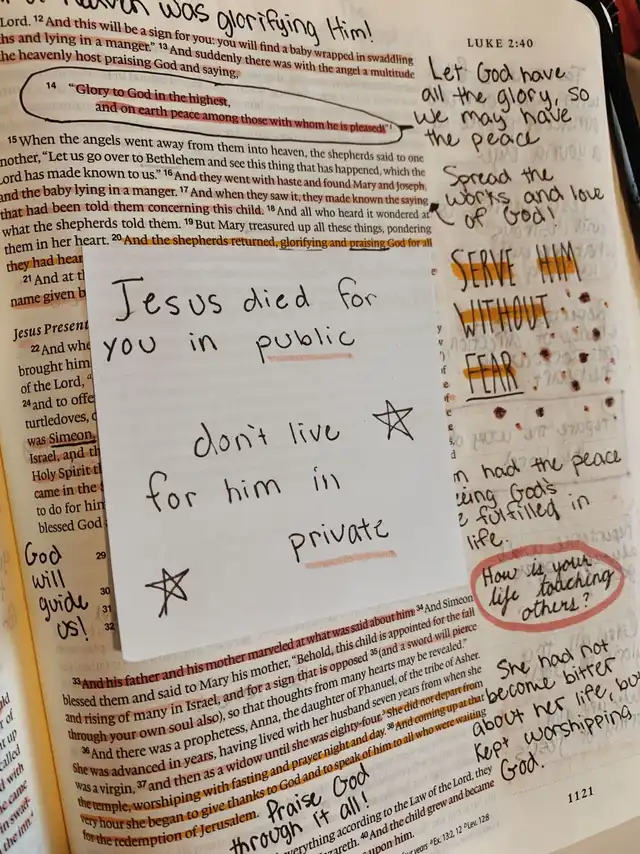 was glorifying Him!
Lord. 12 And this will be a sign for you: you will find a baby wrapped in swaddling
and lying in a manger.” 13 And suddenly there was with the angel a multitude
the heavenly host praising God and saying,
14 “Glory to God in the highest,
and on earth peace among those with whom he is pleased!”
15 When the angels went away from them into heaven, the shepherds said to one
nother, “Let us go over to Bethlehem and see this thing that has happened, which the
Lord has made known to us.” 16 And they went with haste and found Mary and Joseph,
and the baby lying in a manger. 17 And when they saw it, they made known the saying
that had been told them concerning this child. 18 And all who heard it wondered at
what the shepherds told them. 19 But Mary treasured up all these things, pondering
them in her heart. 20 And the shepherds returned, glorifying and praising God for all
they had hear
21 And at t
name given b
Jesus Present
22 And whe
brought him
of the Lord, “
24 and to offe
turtledoves, o
was Simeon,
Israel, and th
Holy Spirit t
came in the
to do for him
blessed God
29
30
31
32
God
will
guide
us!
Jesus died for
you in public
don't live
for him in
private
33 And his father and his mother marveled at what was said about him. 34 And Simeon
blessed them and said to Mary his mother, “Behold, this child is appointed for the fall
and rising of many in Israel, and for a sign that is opposed 35 (and a sword will pierce
through your own soul also), so that thoughts from many hearts may be revealed.”
36 And there was a prophetess, Anna, the daughter of Phanuel, of the tribe of Asher.
She was advanced in years, having lived with her husband seven years from when she
was a virgin, 37 and then as a widow until she was eighty-four. She did not depart from
the temple, worshiping with fasting and prayer night and day. 38 And coming up at that
very hour she began to give thanks to God and to speak of him to all who were waiting
for the redemption of Jerusalem.
Praise God
through it all!
everything according to the Law of the Lord, they
40 And the child grew and became
upon him.
Ex. 13:2, 12
Lev. 12:8
LUKE 2:40
Let God have
all the glory, so
we may have
the peace
Spread the
works and love
of God!
SERVE HIM
WITHOUT
FEAR
had the peace
God's
fulfilled in
life.
How is your
life teaching
others?
She had not
become bitter
about her life, but
kept worshipping
God.
1121